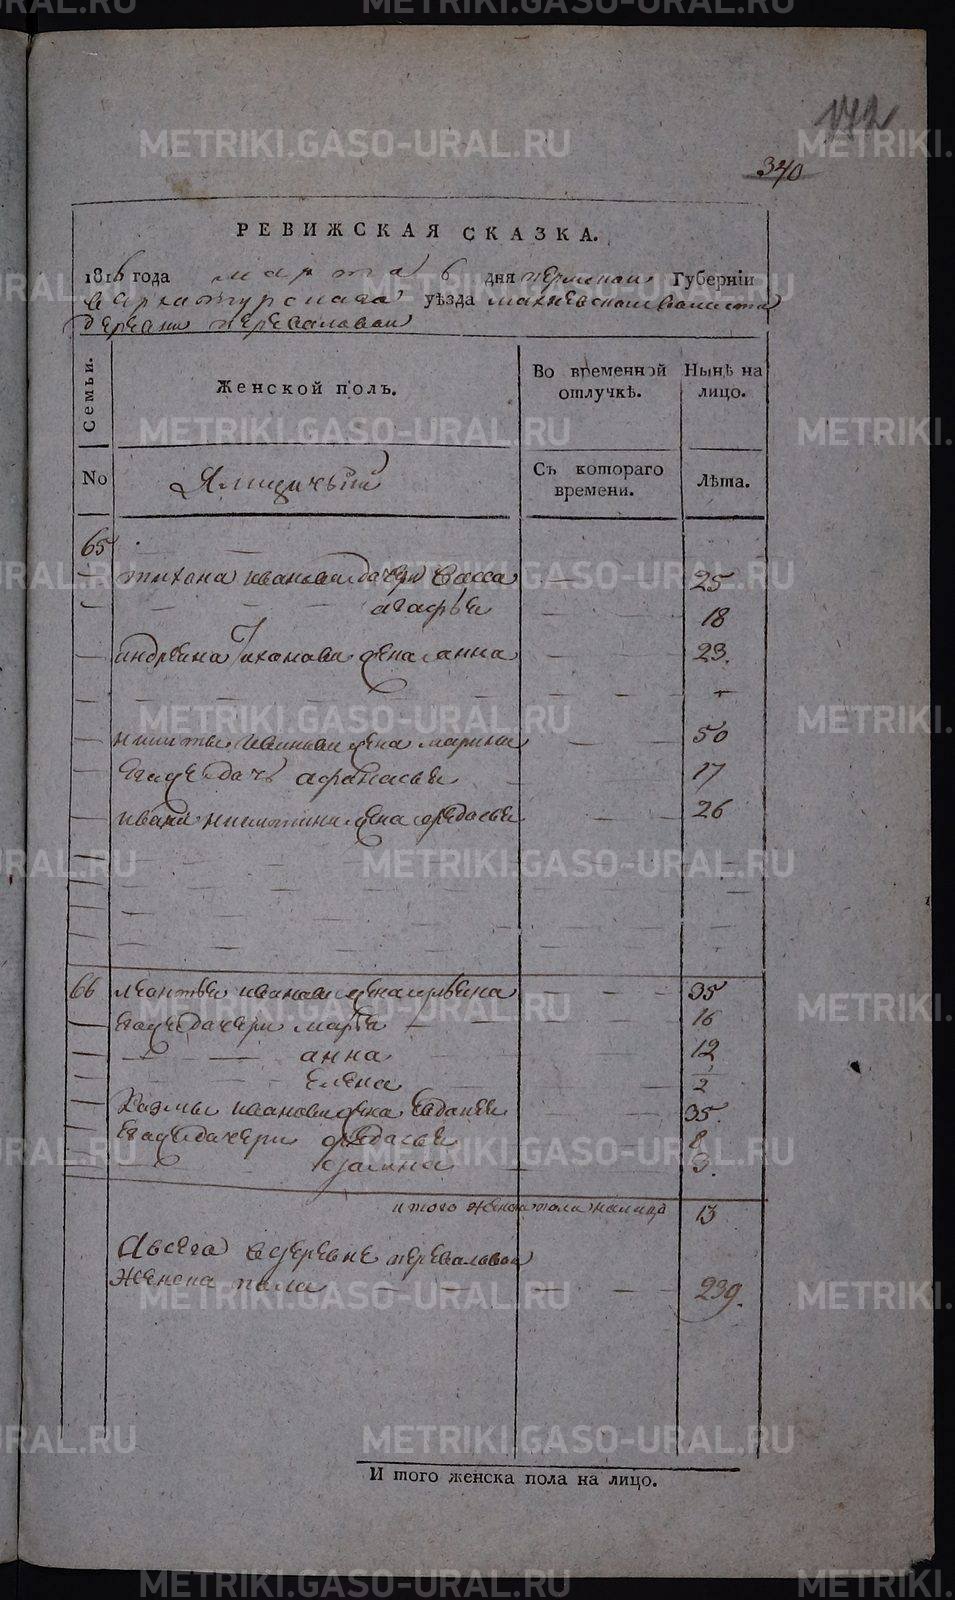 172
340
РЕВИЖСКАЯ СКАЗКА.
1816 года марта 6 дня пермской Губернїи
верхотурскаго уѣзда махневской волости
деревни переваловой
Семьи.
Женской полъ.
Во временной отлучкѣ.
Нынѣ на лицо.
No
Ямщичьый
Съ котораго времени.
Лѣта.
65
тихана иванова дочери васса 25
агафье 18
андреяна Тиханова жена анна 23.
никиты иванова жена марина 50
егаже дочь афанасье 17
ивана никитина жена федосье 26
66 леонтье иванова жена 35
егаже дочери марфа 16
анна 12
елена 2
Казмы иванова жена евдание 35.
егаже дочери федосье 8
3.
итого женска пола налицо 13
Авсега вдеревне переваловой
женска пола 239.
И того женска пола на лицо.
METRIKI.GASO-URAL.RU